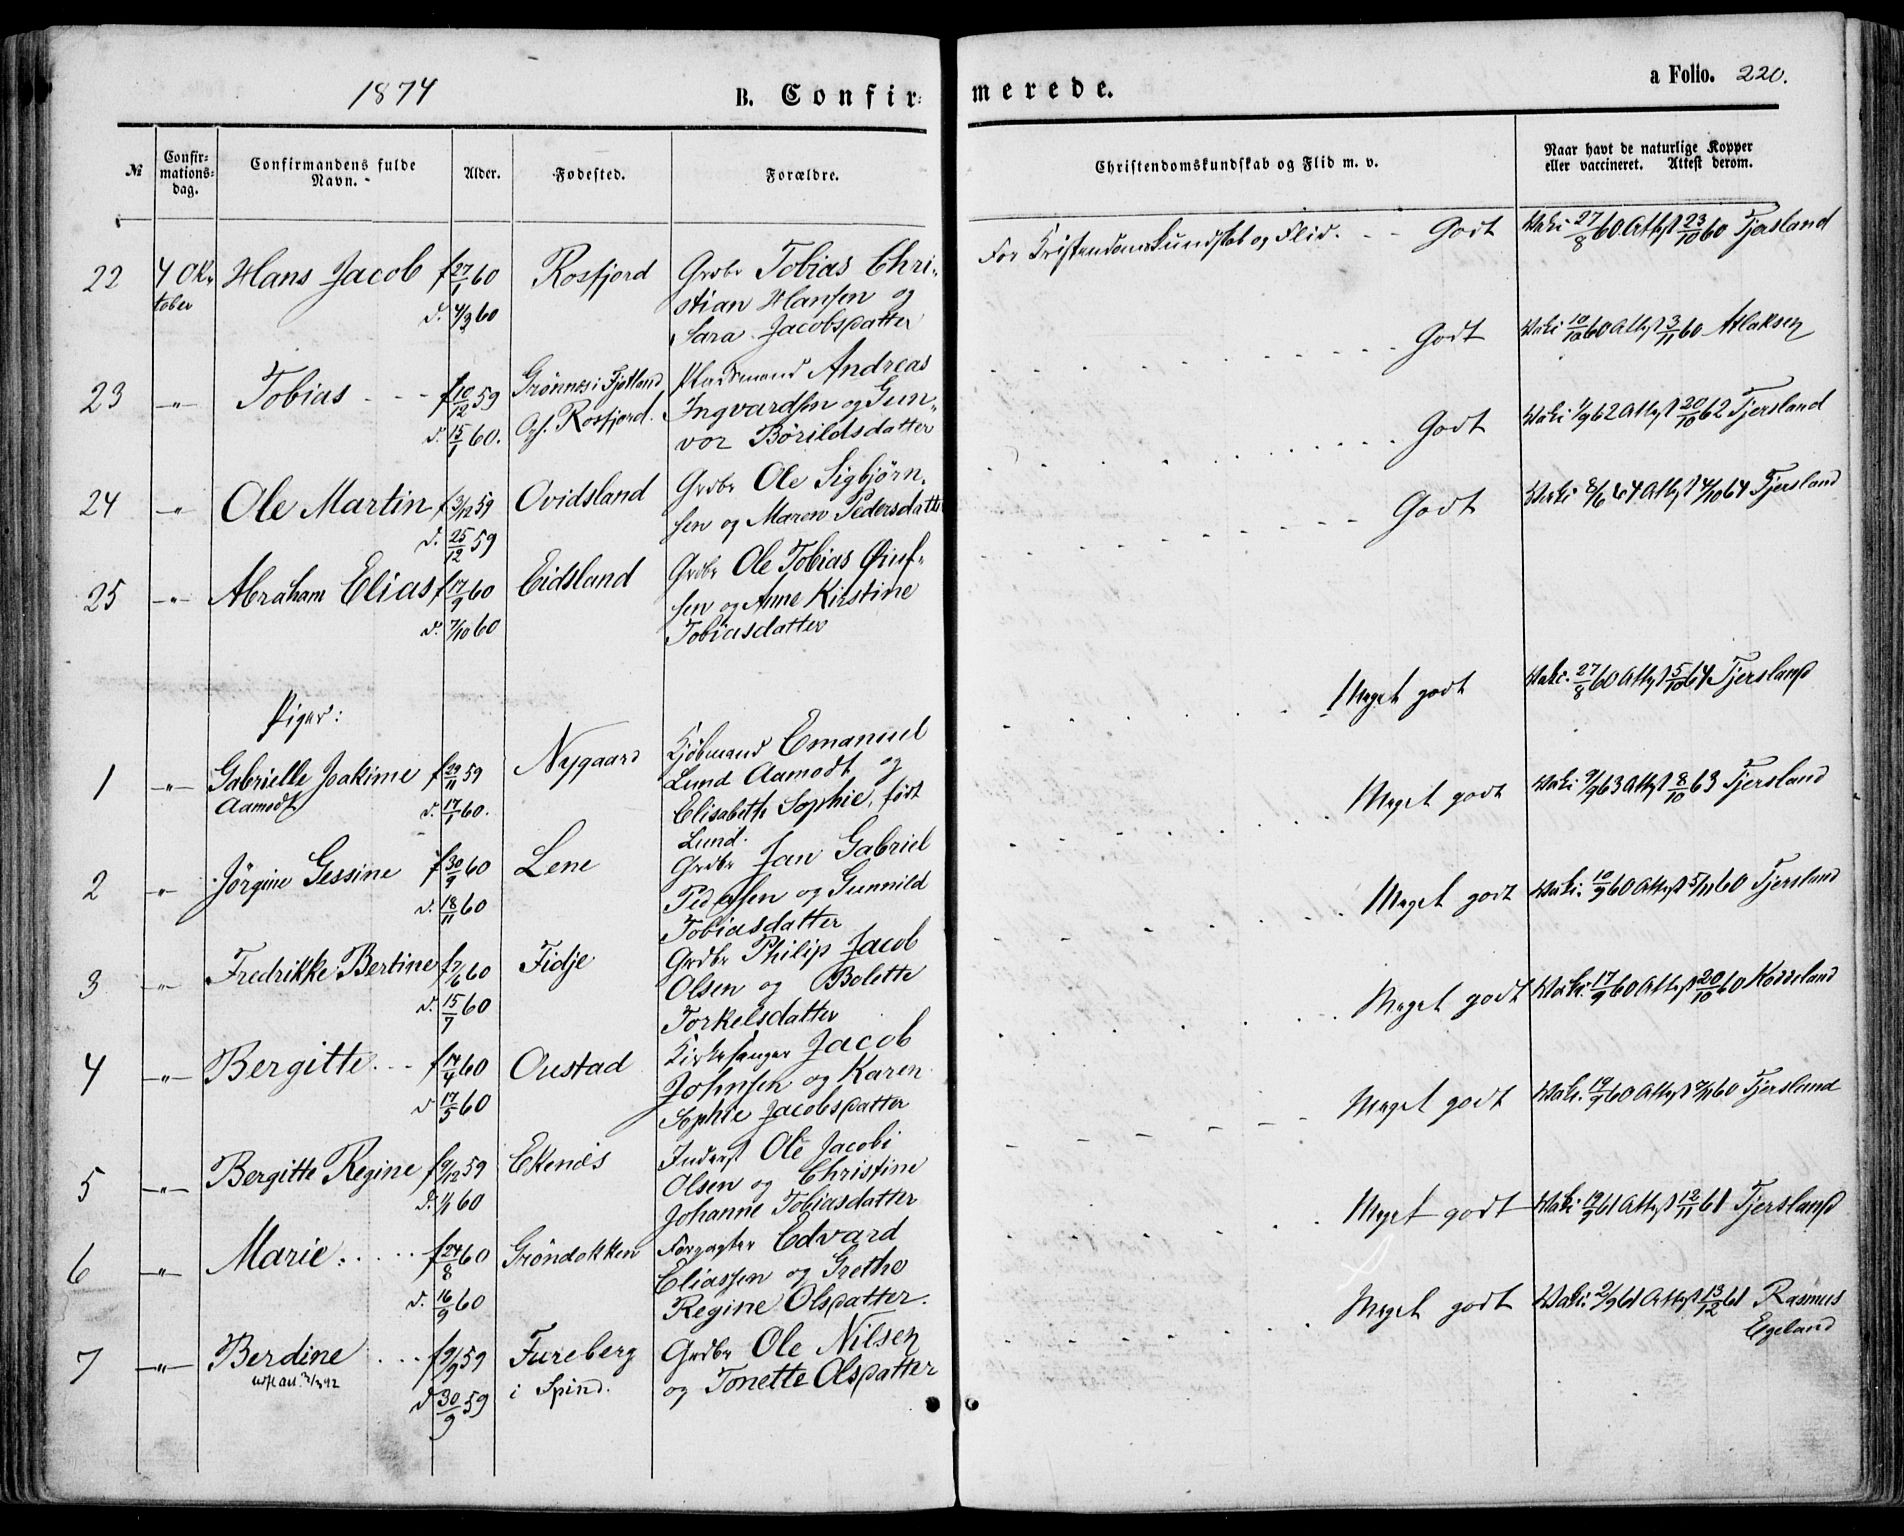 1874
B. Confir-
merede.
a Folio. 220.
№
Confir-
mations-
dag.
Confirmandens fulde
Navn.
Alder.
Fødested.
Forældre.
Christendomskundskab og Flid m. v.
Naar havt de naturlige Kopper
eller vaccineret. Attest derom.
22 4 Ok- Hans Jacob f 27/1 60 Rosfjord Grdbr Tobias Chri-
tober d. 4/3 60 stian Hansen og
Sara Jacobsdatter
For Kristendomskundskab og Flid. - - Godt Vaki 27/8 60 Attest 23/10 60 Tjersland
23 -"- Tobias - - - f 10/12 59 Grønnes i Fjotland Pladsmand Andreas
d. 15/1 60. Opf. Rosfjord. Ingvardsen og Gun-
vor Børildsdatter
Godt Vaki 10/10 60 Attest 3/11 60 Atlaksen
24 -"- Ole Martin f 3/12 59 Ovidsland Grdbr Ole Sigbjørn-
d. 25/12 59 sen og Maren Pedersdatter
Godt Vaki 1/9 62 Attest 20/10 62 Tjersland
25 -"- Abraham Elias f 17/9 60 Eidsland Grdbr Ole Tobias
d. 7/10 60 sen og Anne Kirstine
Tobiasdatter
Godt Vaki 8/6 64 Attest 4/10 64 Tjersland
Piger:
1 -"- Gabrielle Joakime f 29/11 59 Nygaard Kjøbmand Emanuel
Aamodt d. 17/1 60. Lund Aamodt og
Elisabeth Sophie, født
Lund.
Meget godt Vaki. 27/8 60 Attest 5/10 64 Tjersland
2 -"- Jørgine Gessine f 30/9 60 Lene Grdbr Jan Gabriel
d. 18/11 60 Pedersen og Gunnild
Tobiasdatter
Meget godt Vaki 9/9 63 Attest 8/10 63 Tjersland
3 -"- Fredrikke Bertine f 7/6 60 Fidje Grdbr Philip Jacob
d. 15/7 60 Olsen og Bolette
Torkelsdatter
Meget godt Vaki. 10/9 60 Attest 5/11 60 Tjersland
4 -"- Bergitte - - - f 14/4 60 Oustad Kirkesanger Jacob
d 17/5 60 Johnsen og Karen
Sophie Jacobsdatter
Meget godt Vaki. 17/9 60 Attest 20/10 60 Kodseland
5 -"- Bergitte Regine f 9/12 59 Ekenæs Inderst Ole Jacobi
d. 1/1 60 Olsen og Christine
Johanne Tobiasdatter
Meget godt Vaki. 19/9 60 Attest 7/11 60 Tjersland
6 -"- Marie. . . . . f 24/8 60 Grøndokken Forpagter Edvard
d. 16/9 60 Eliassen og Grethe
Regine Olsdatter.
Meget godt Vaki 19/9 61 Attest 12/11 61 Tjersland
7 -"- Berdine . . . f 9/9 59 Fureberg Grdbr Ole Nilsen
d 30/9 59 i Spind. og Tonette Olsdatter
Meget godt Vaki. 2/9 61 Attest 13/12 61 Rasmus
Egeland